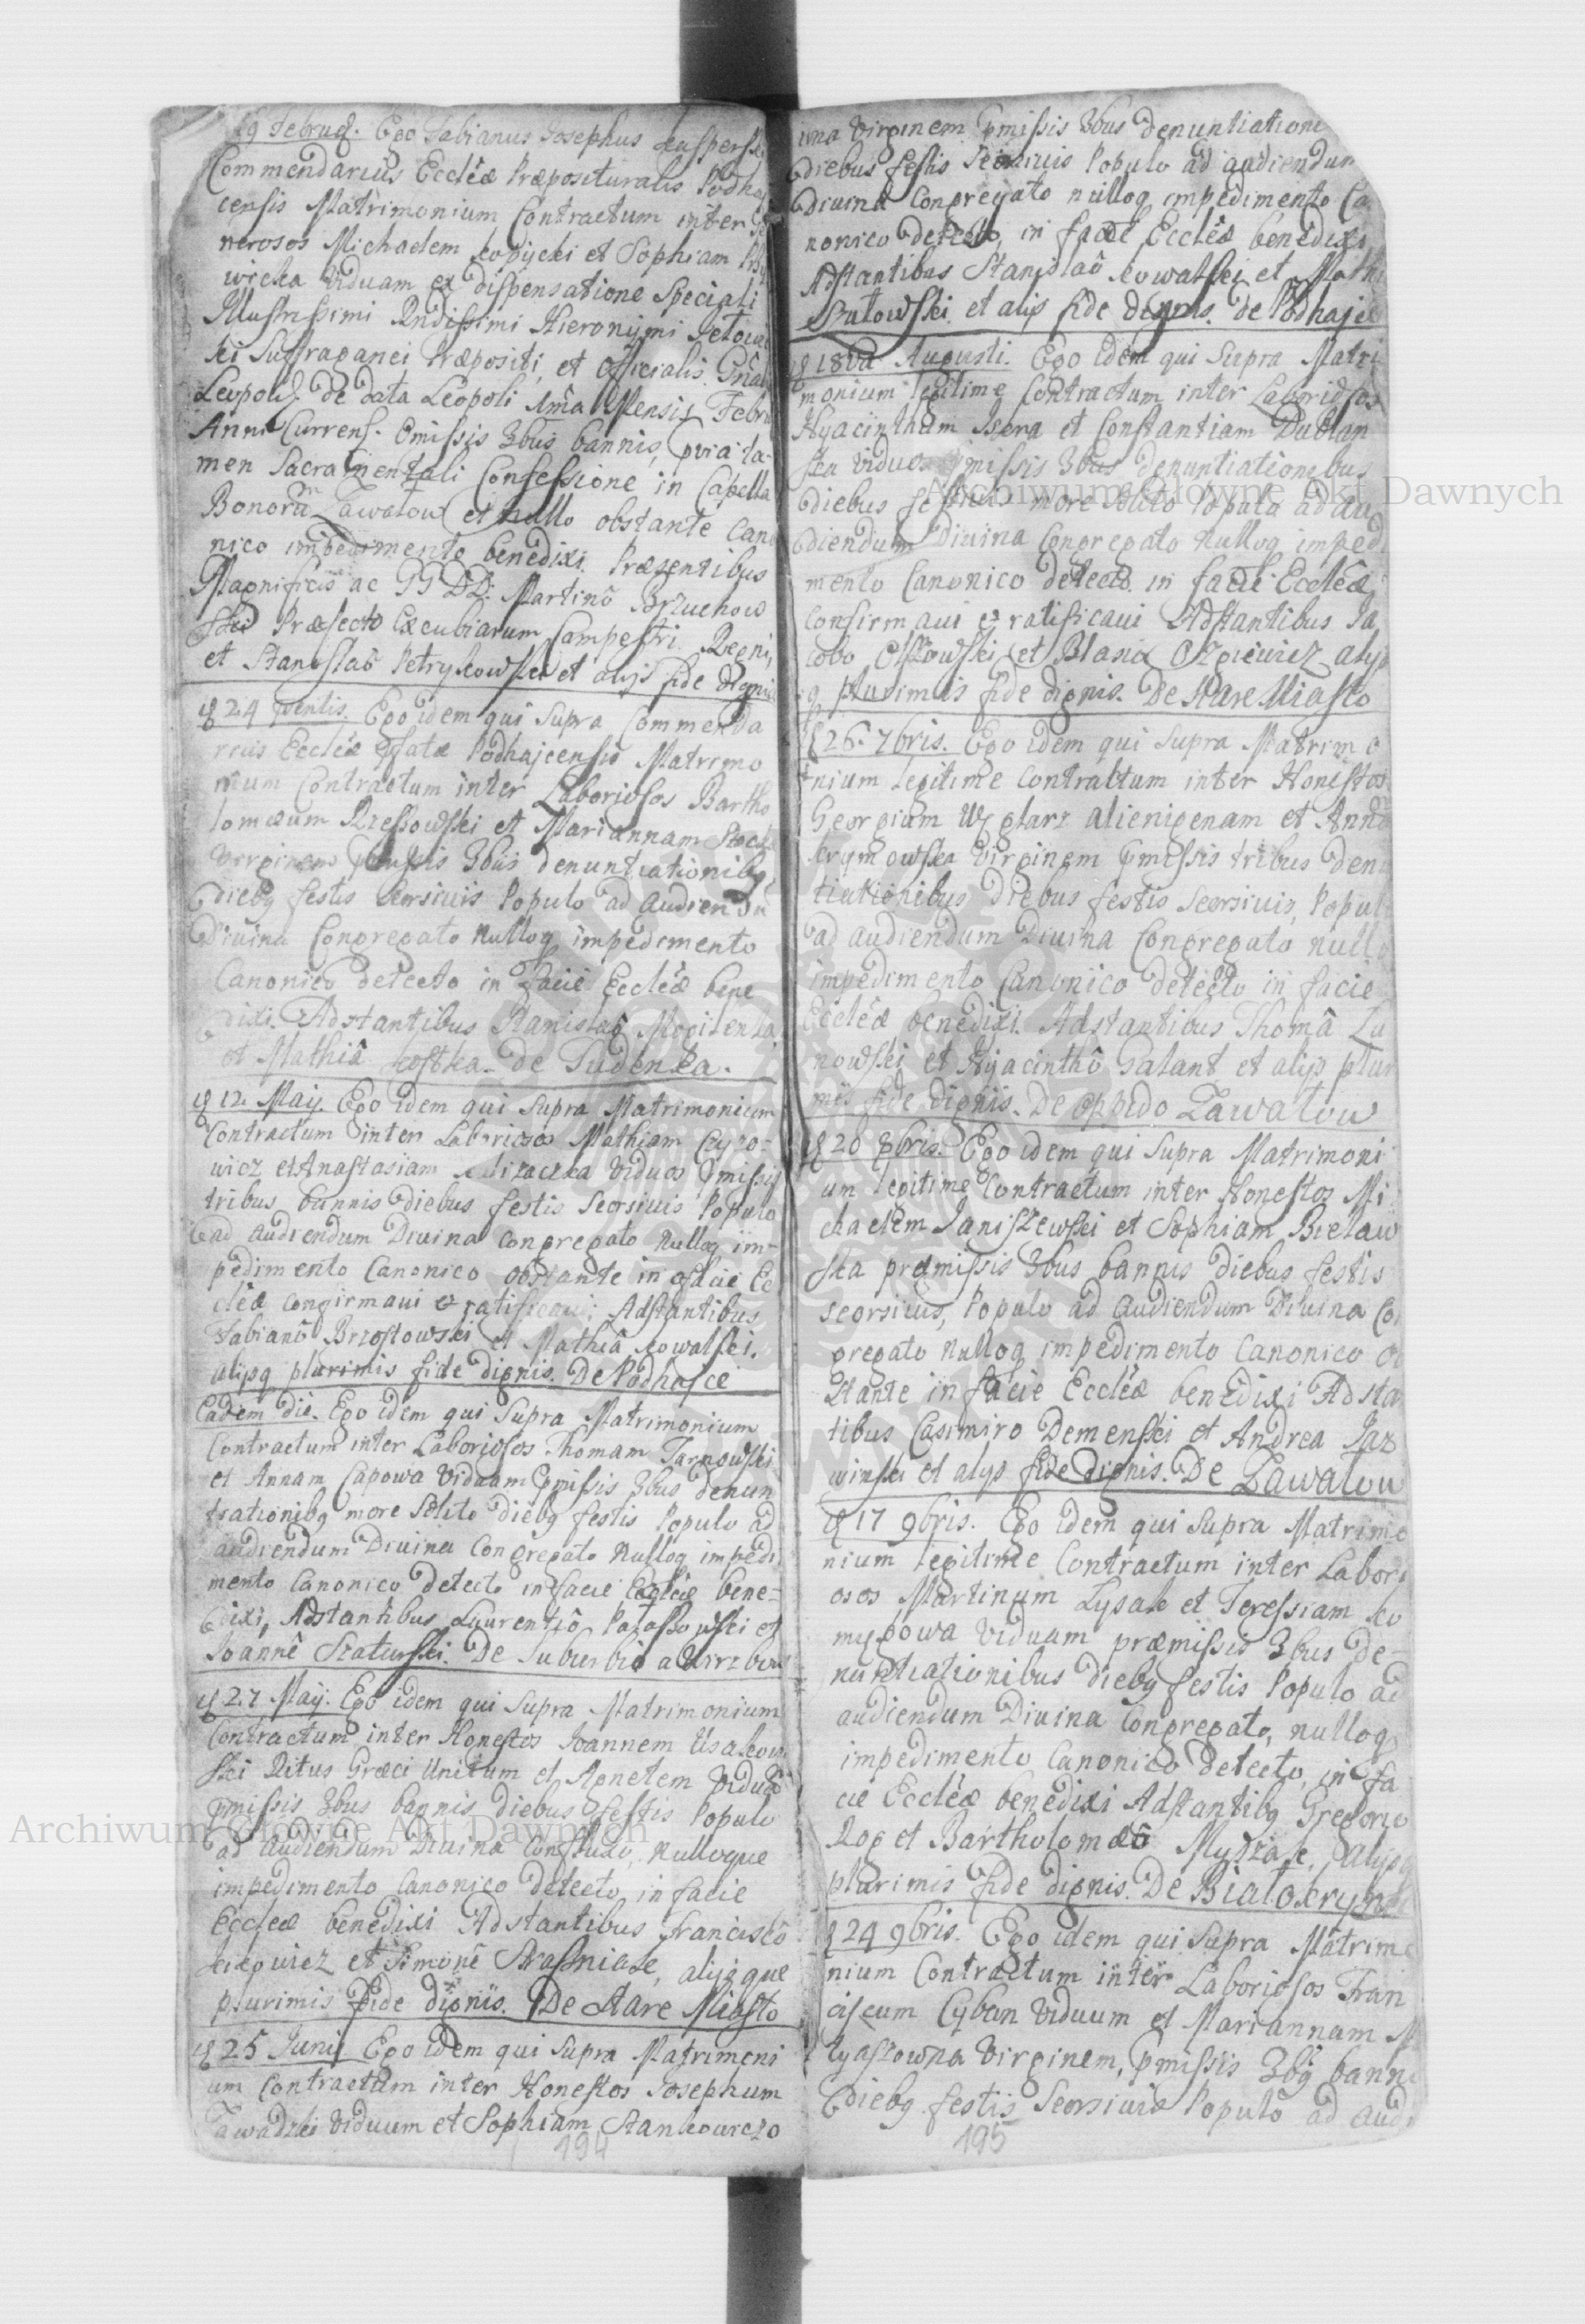 19 Februa. Ego Fabianus Josephus
Commendarius Eccleæ Præposituralis Podhay
censis Matrimonium Contractum inter Ge
nerosos Michaelem Kopycki et Sophiam
wicka Viduam ex dispensatione Speciali
Illustrissimi Rndissimi Hieronymi
ski Suffraganei Præpositi, et Officialis Gnâlis
Leopol. de data Leopoli Mensis Febru
Anni Currens. Omissis 3bus bannis, pvia ta-
men Sacramentali Confessione in Capella
Bonorũ Zawatow et nullo obstante Cano
nico impedimento benedixi. Præsentibus
Magnificis ac GG DD. Martinô Brzuchow
ski Præfecto Excubiarum Campestri Regni,
et Stanislaô Petrykowski et alijs fide dignis
24 Ego idem qui Supra Commenda
rius Eccleæ Podhajcensis Matrimo
nium Contractum inter Laboriosos Bartho
lomæum Rzessowski et Mariannam
Virginem pmissis 3bus denuntiationibq
diebq festis Seorsivis Populo ad Audiendũ
Divina Congregato Nulloq impedimento
Canonico detecto in facie Eccleæ bene
dixi. Adstantibus Stanislaô
et Mathiâ Kostka. De Sudenka.
12. Maij. Ego idem qui Supra Matrimonium
Contractum inter Laboriosos Mathiam
wicz et Anastasiam Viduos pmissis
tribus bannis diebus festis Seorsivis Populo
ad Audiendum Divina Congregato Nulloq im-
pedimento Canonico obstante in facie Ec
cleæ Confirmavi & ratificavi. Adstantibus
Fabianô Brzostowski et Mathiâ Kowalski.
alijsq plurimis fide dignis. De Podhajce
Eadem die. Ego idem qui Supra Matrimonium
Contractum inter Laboriosos Thomam Tarnowski
et Annam Capowa Viduam pmissis 3bus denun
tiationibq more Solito diebq festis Populo ad
audiendum Divina Congregato Nulloq impedi
mento Canonico detecto in facie Eccleæ bene-
dixi, Adstantibus Laurentiô et
Joannê Staturski. De Suburbio
27 Maij. Ego idem qui Supra Matrimonium
Contractum inter Honestos Joannem
ski Ritus Græci Unitum et Agnetem Viduã
pmissis 3bus bannis diebus festis Populo
ad Audiendum Divina Nulloque
impedimento Canonico detecto, in facie
Eccleæ benedixi Adstantibus Franciscô
et Simonê Strasniak, alijsque
plurimis fide dignis. De Stare Miasto
25 Junij Ego idem qui Supra Matrimoni
um Contractum inter Honestos Josephum
Zawadzki Viduum et Sophiam Stankowiczo
194
wna Virginem pmissis 3bus denuntiationi
diebus festis Seorsivis Populo ad audiendum
divina Congregato nulloq impedimento Ca
nonico detecto, in facie Eccleæ benedixi
Adstantibus Stanislaô Kowalski et Mathi
et alijs fide dignis. De Podhajce
18va Augusti. Ego idem qui Supra Matri
monium legitime Contractum inter Laboriosos
Hyacinthum et Constantiam Dublan
ska Viduos pmissis 3bus denuntiationibus
diebus festivis more Solito Populo ad au
diendum Divina Congregato Nulloq impedi
mento Canonico detecto in facie Eccleæ
Confirmavi & ratificavi Adstantibus Ja
cobo et Blasio alijs
q plurimis fide dignis. De Stare Miasto
26. 7bris. Ego idem qui Supra Matrimo
nium legitime Contractum inter Honestos
Georgium Węglarz alienigenam et Annã
Krymowska Virginem pmissis tribus denu
tiationibus Diebus festis Seorsivis, Populo
ad audiendum Divina Congregato nulloq
impedimento Canonico detecto in facie
Eccleæ benedixi. Adstantibus Thomâ Zu
nowski et Hyacinthô Galant et alijs pluri
mis fide dignis. De Oppido Zawatow
20 8bris. Ego idem qui Supra Matrimoni
um legitime Contractum inter Honestos Mi
chaelem Janiszewski et Sophiam Bielaw
ska præmissis 3bus bannis diebus festis
seorsivis, Populo ad Audiendum Divina Con
gregato Nulloq impedimento Canonico ob
stante in facie Eccleæ benedixi Adstan
tibus Casimiro Demenski et Andrea Jaz
winski et alijs fide dignis. De Zawatow
17 9bris. Ego idem qui Supra Matrimo
nium legitime Contractum inter Labori
osos Martinum Lysak et Teressiam Ko
mygowa Viduam præmissis 3bus de-
nuntiationibus diebq festis Populo ad
audiendum Divina Congregato, nulloq
impedimento Canonico detecto, in fa
cie Eccleæ benedixi Adstantibq Gregorio
Rog et Bartholomæô alijsq
plurimis fide dignis. De Białokrynica
24 9bris. Ego idem qui Supra Matrimo
nium Contractum inter Laboriosos Fran
ciscum Cyban Viduum et Mariannam
Virginem, pmissis 3bq bannis
diebq festis Seorsivis Populô ad audi
195
Archiwum Główne Akt Dawnych
Archiwum Główne Akt Dawnych